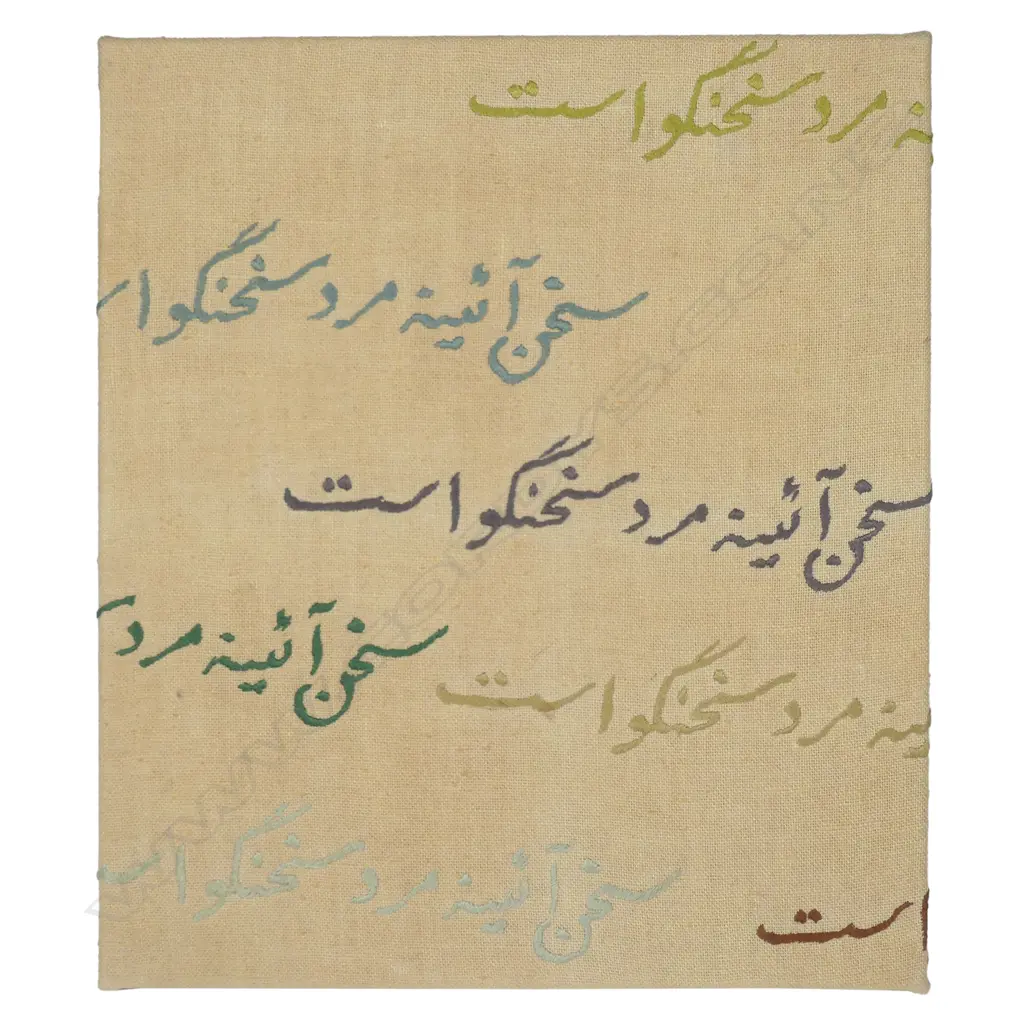 نه مرد سخنگو است
سخن آئینه مرد سخنگو ا
سخن آئینه مرد سخنگو است
سخن آئینه مرد
ینه مرد سخنگو است
سخن آئینه مرد سخنگو اس
است